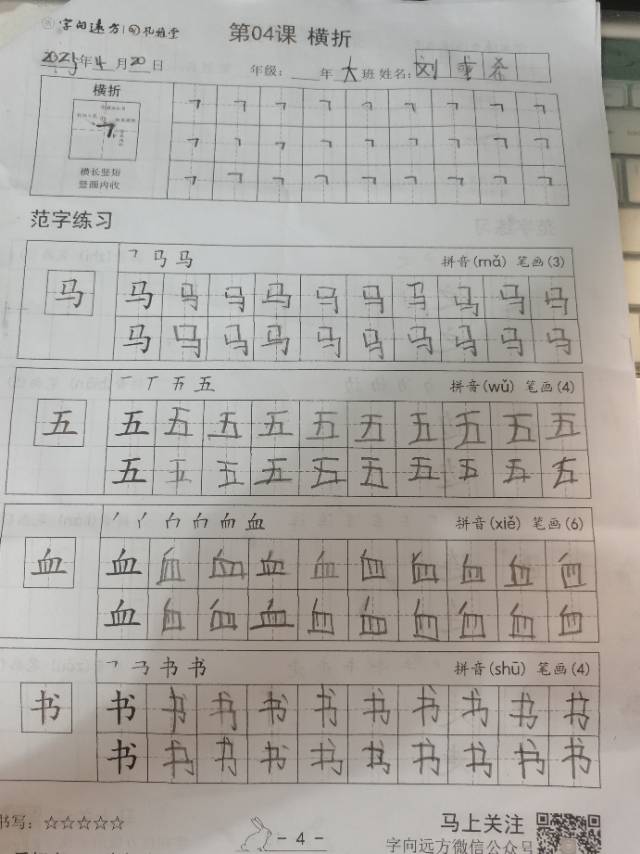 字向远方 第04课 横折
2025年4月20日 年级：年 大班 姓名：刘 希
横折
横长竖短
竖画内收
范字练习
㇕ 马 马 拼音(mǎ) 笔画(3)
马 马 马 马 马 马 马 马 马 马 马
马 马 马 马 马 马 马 马 马 马
一 丅 五 五 拼音(wǔ) 笔画(4)
五 五 五 五 五 五 五 五 五 五 五
五 五 五 五 五 五 五 五 五 五
血 拼音(xiě) 笔画(6)
血 血 血 血 血 血 血 血 血 血 血
血 血 血 血 血 血 血 血 血 血
㇕ 书 书 拼音(shū) 笔画(4)
书 书 书 书 书 书 书 书 书 书 书
书 书 书 书 书 书 书 书 书 书
书写：☆☆☆☆☆
- 4 -
马上关注
字向远方微信公众号